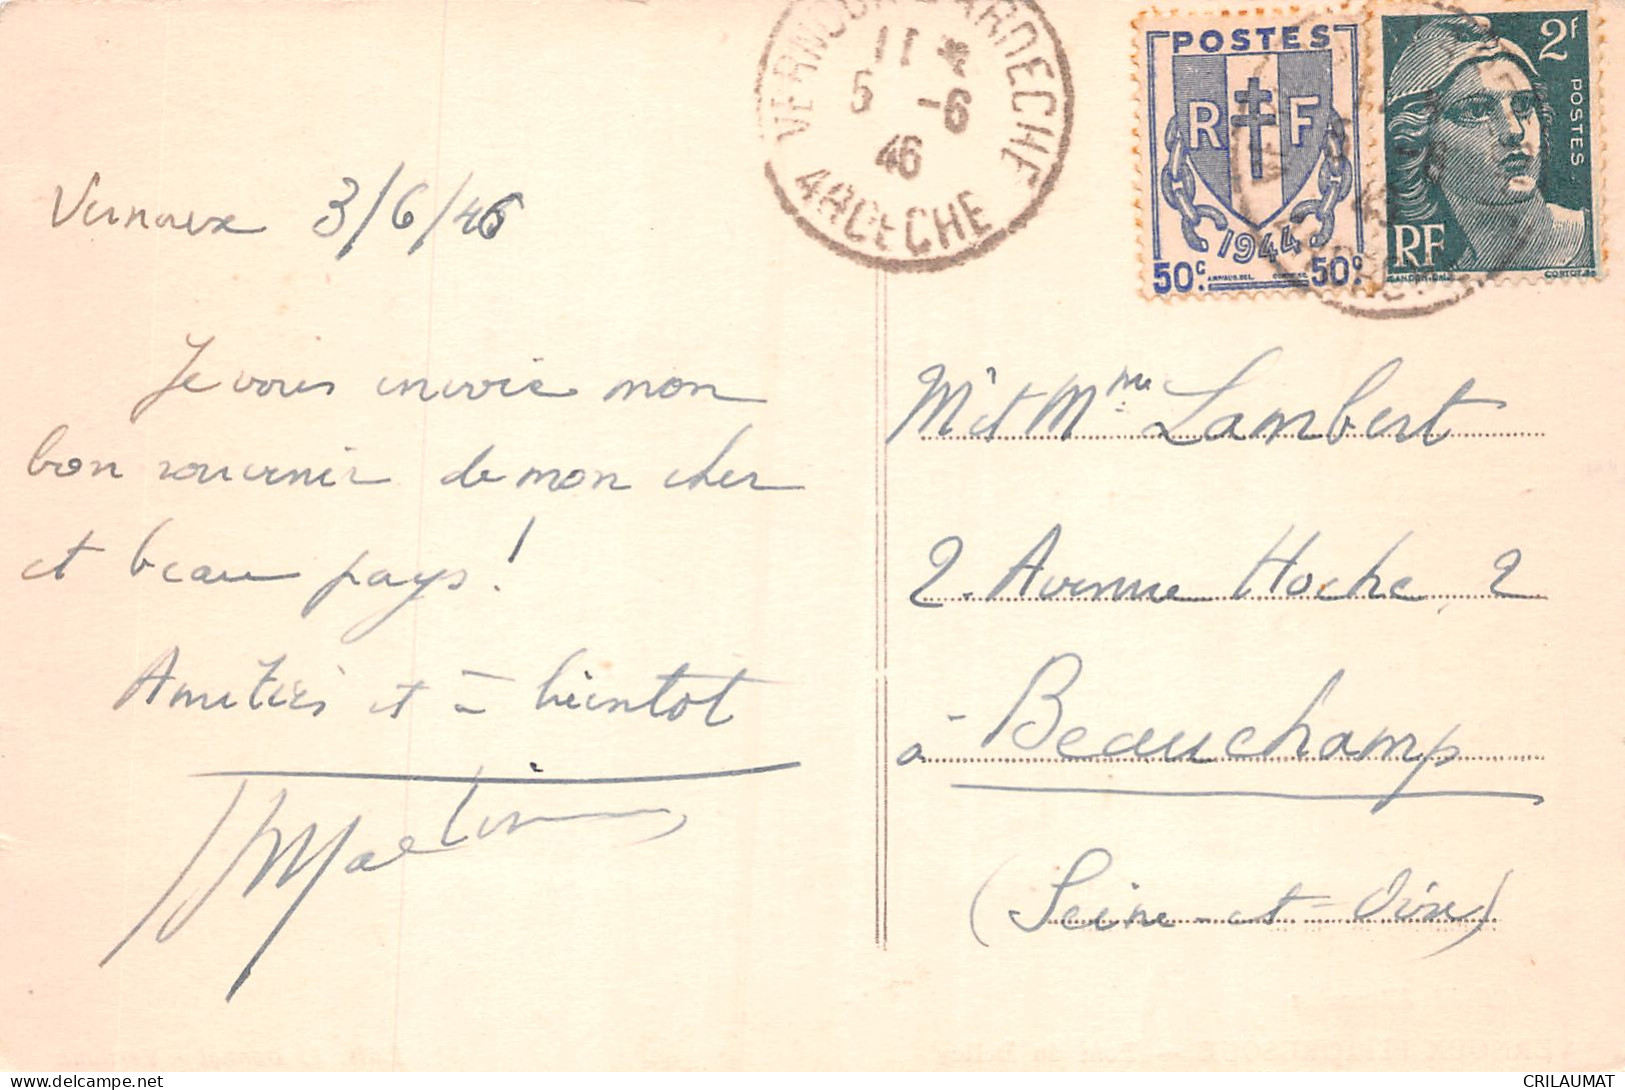 ARDECHE
11 *
5 -6
46
ARDECHE
POSTES
R F
1944
50c 50c
2F
POSTES
RF
GANDON
CORTOT
Vernoux 3/6/46
Je vous envoie mon
bon souvenir de mon cher
et beau pays!
Amitiés et à bientôt
JMartin
Mr et Mme Lambert
2. Avenue Hoche, 2
à Beauchamp
(Seine-et-Oise)
CRILAUMAT